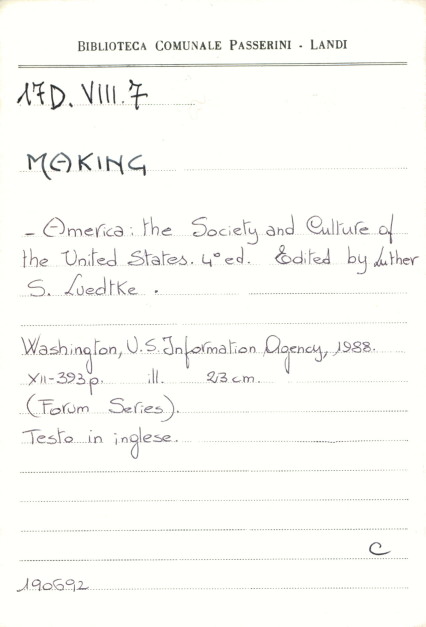 BIBLIOTECA COMUNALE PASSERINI - LANDI
17D. VIII. 7
MAKING
- America: the Society and Culture of
the United States. 4° ed. Edited by Luther
S. Luedtke.
Washington, U.S. Information Agency, 1988.
XII-393 p. ill. 23 cm.
(Forum Series).
Testo in inglese.
C
190592